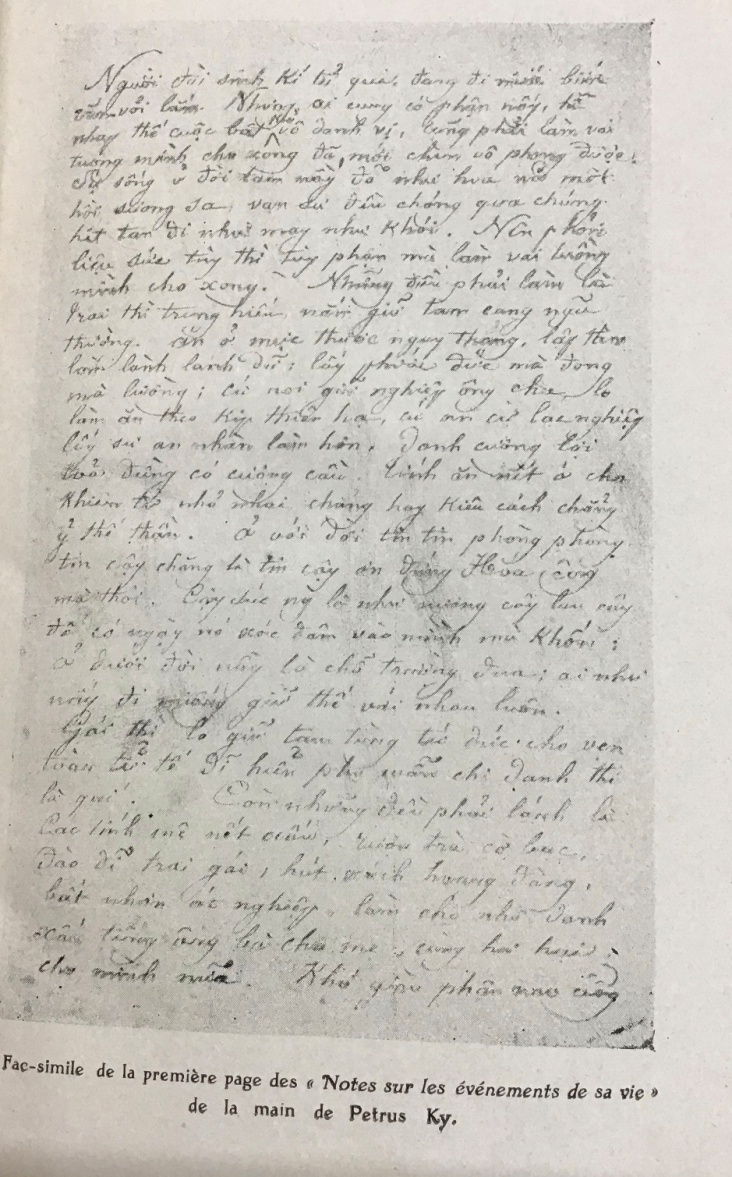 Người đời sinh kí tử qui, đang đi
vắn vỏi lắm. Nhưng ai cũng có phận nấy,
nhay thế cuộc bất vô danh vị, cũng phải làm vai
tuồng mình cho xong đã, mới chun vô phòng được.
Sự sống ở đời tạm nầy, đỗ như hưu một
hột sương sa, vạn sự đều chóng qua chúng
hết tan đi như mây như khói. Nên phải
liệu sức tùy thì tùy phận mà làm vai tuồng
mình cho xong. Những điều phải làm là
trai thì trung hiếu, nắm giữ tam cang ngũ
thường. ăn ở mực thước ngay thẳng, lấy
làm lành lánh dữ; lấy phước đức mà đong
mà lường; cứ noi giữ nghiệp ông cha, lo
làm ăn theo kịp thiên hạ, cứ an cư lạc nghiệp
lấy sự an nhàn làm hơn, danh cương lợi
toả đừng có cượng cầu. tính ăn nết ở cho
khiêm từ nhỏ nhoi, chẳng hay kiêu cách chẳng
ỷ thế thần. Ở với đời tin tin phòng phòng
tin cậy chăng là tin cậy ơn đứng Hóa công
mà thôi. Cậy sức ng là như nương cây lau cây
đế có ngày nó xóc đâm vào mình mà khốn;
Ở dưới đời nầy là chỗ trường đua; ai như
nấy đi miếng giữ thế với nhau luôn.
Gái thì lo giữ tam tùng tứ đức cho vẹn
toàn tử tế dĩ hiển phụ mẫu chi danh thì
là quí. Còn những đều phải lánh là
Các tính mê nết xấu, rượu trà cờ bạc,
đào đĩ trai gái, hút xách hoang đàng,
bất nhơn ác nghiệp, làm cho nhơ danh
xấu tiếng ông bà cha mẹ, cùng hư hại
cho mình nữa. Khó giàu phận nào cũng
Fac-simile de la première page des « Notes sur les événements de sa vie »
de la main de Petrus Ky.